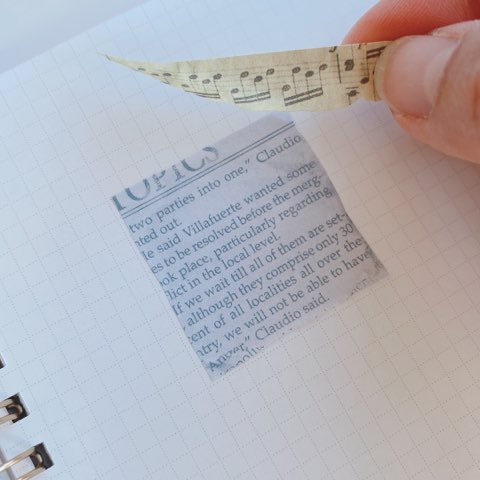 TOPICS
two parties into one," Claudio
nted out.
le said Villafuerte wanted some
es to be resolved before the merg-
ok place, particularly regarding
lict in the local level.
If we wait till all of them are set-
, although they comprise only 30
cent of all localities all over the
ntry, we will not be able to have
Anger," Claudio said.